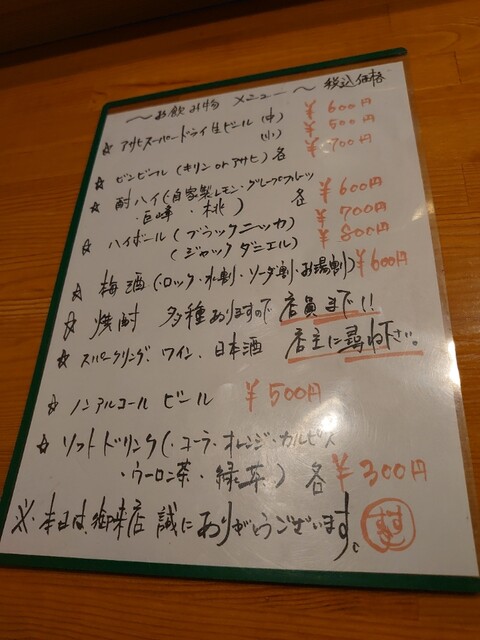 ～お飲み物 メニュー～ 税込価格
☆ アサヒスーパードライ生ビール (中) ￥600円
(小) ￥500円
☆ ビンビール (キリン or アサヒ) 各 ￥700円
☆ 酎ハイ (自家製レモン・グレープフルーツ
・巨峰・桃) 各 ￥600円
☆ ハイボール (ブラックニッカ) ￥700円
(ジャックダニエル) ￥800円
☆ 梅酒 (ロック・水割・ソーダ割・お湯割) ￥600円
☆ 焼酎 多種ありますので 店員まで!!
☆ スパークリング、ワイン、日本酒 店主に尋ね下さい。
☆ ノンアルコール ビール ￥500円
☆ ソフトドリンク (・コーラ・オレンジ・カルピス
・ウーロン茶・緑茶) 各 ￥300円
※・本日は、御来店 誠にありがとうございます。